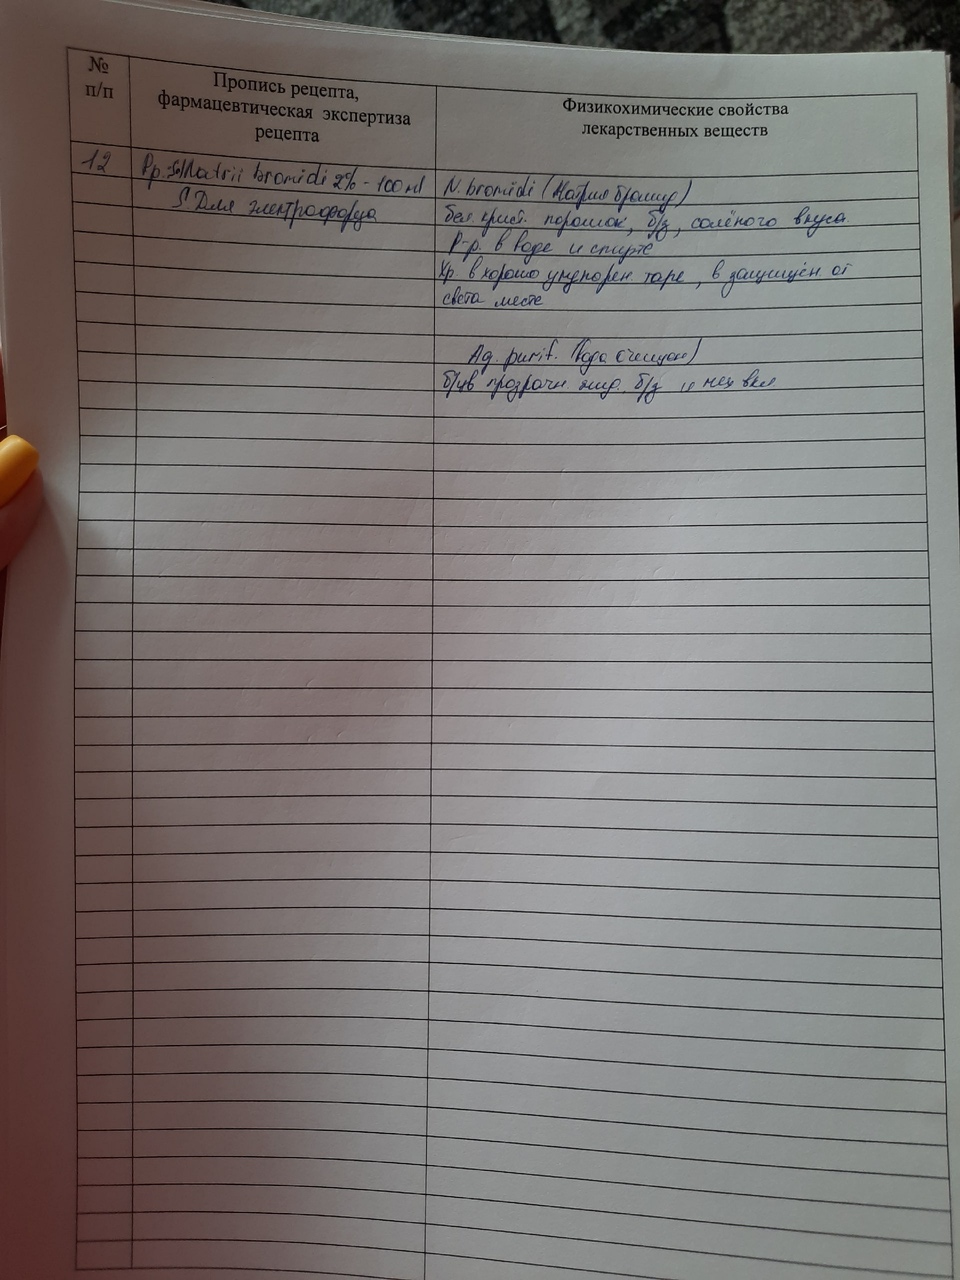 №
п/п
Пропись рецепта,
фармацевтическая экспертиза
рецепта
Физикохимические свойства
лекарственных веществ
12
Rp.: Sol Natrii bromidi 2% - 100 ml
S. Для электрофореза
N. bromidi (Натрия бромид)
бел. крист. порошок, б/з, солёного вкуса
Р-р. в воде и спирте
Хр. в хорошо укупорен таре, в защищён от
света месте
Aq. purif. (Вода очищен)
б/цв прозрачн жид. б/з и